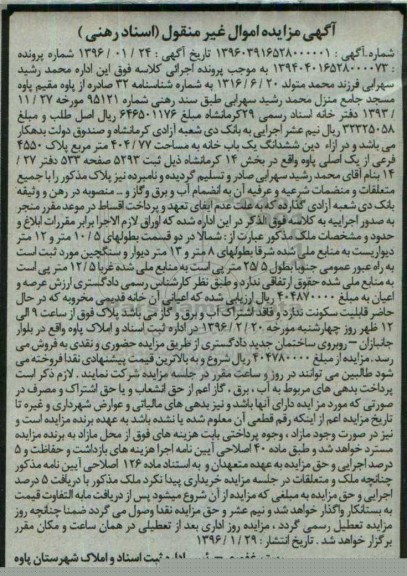 آگهی مزایده اموال غیر منقول (اسناد رهنی)
شماره آگهی : ۱۳۹۶۰۳۹۱۶۵۲۸۰۰۰۰۰۱ تاریخ آگهی : ۲۴ / ۰۱ / ۱۳۹۶ شماره پرونده
: ۱۳۹۴۰۴۰۱۶۵۲۸۰۰۰۰۷۳ به موجب پرونده اجرائی کلاسه فوق این اداره محمد رشید
سهرابی فرزند محمد متولد ۲۰ / ۶ / ۱۳۱۶ به شماره شناسنامه ۳۲ صادره از پاوه مقیم پاوه
مسجد جامع منزل محمد رشید سهرابی طبق سند رهنی شماره ۹۵۱۲۱ مورخه ۲۷ / ۱۱
/ ۱۳۹۳ دفتر خانه اسناد رسمی ۲۹کرمانشاه مبلغ ۶۴۶۵۰۱۱۷۶ ریال اصل طلب و مبلغ
۳۲۳۲۵۰۵۸ ریال نیم عشر اجرایی به بانک دی شعبه آزادی کرمانشاه و صندوق دولت بدهکار
می باشد و در ازاء دین ششدانگ یک باب خانه به مساحت ۷۷ / ۴۰۴ متر مربع پلاک ۴۵۵۰
فرعی از یک اصلی پاوه واقع در بخش ۱۴ کرمانشاه ذیل ثبت ۵۲۹۳ صفحه ۵۳۳ دفتر ۲۷ /
۱۴ بنام آقای محمد رشید سهرابی صادر و تسلیم گردیده و نامبرده نیز پلاک مذکور را با جمیع
متعلقات و منضمات شرعیه و عرفیه آن به انضمام آب و برق وگاز و .. منصوبه در رهن و وثیقه
بانک دی شعبه آزادی گذارده که به علت عدم ایفای تعهد و پرداخت اقساط در موعد مقرر منجر
به صدور اجراییه به کلاسه فوق الذکر در این اداره شده که اوراق لازم الاجرا برابر مقررات ابلاغ و
حدود و مشخصات ملک مذکور عبارت از : شمالا در دو قسمت بطولهای ۵ / ۱۰ متر و ۱۲ متر
دیواریست به منابع ملی شده شرقا بطولهای ۸ متر و ۱۳ متر دیوار و سنگچین مورد ثبت است
به راه عبور عمومی جنوبا بطول ۲۵ ۵ متر پی است به منابع ملی شده غربا ۵ / ۱۲ متر پی است
به منابع ملی شده حقوق ارتفاقی ندارد و طبق نظر کارشناس رسمی دادگستری ارزش عرصه و
اعیان به مبلغ ۴۰۴۸۷۰۰۰۰ ریال ارزیابی شده که اعیانی آن خانه قدیمی مخروبه که در حال
حاضر قابلیت سکونت ندارد و فاقد اشتراک آب و برق و گاز می باشد پلاک فوق از ساعت ۹ الی
۱۲ ظهر روز چهارشنبه مورخه ۲۰ / ۲ / ۱۳۹۶ در اداره ثبت اسناد و املاک پاوه واقع در بلوار
جانبازان – روبروی ساختمان جدید دادگستری از طریق مزایده حضوری و نقدی به فروش می
رسد .مزایده از مبلغ ۴۰۴۷۸۰۰۰۰ ریال شروع و به بالاترین قیمت پیشنهادی نقدا فروخته می
شود طالبین می توانند در روز و ساعت مقرر در جلسه مزایده شرکت نمایند . لازم ذکر است
پرداخت بدهی های مربوط به آب ، برق ، گاز اعم از حق انشعاب و یا حق اشتراک و مصرف در
صورتی که مورد مز ایده دارای آنها باشد و نیز بدهی های مالیاتی و عوارض شهرداری و غیره تا
تاریخ مزایده اعم از اینکه رقم قطعی آن معلوم شده یا نشده باشد به عهده برنده مزایده است و
نیز در صورت وجود مازاد ، وجوه پرداختی بابت هزینه های فوق از محل مازاد به برنده مزایده
مسترد خواهد شد و طبق ماده ۴۰ اصلاحی آیین نامه اجرا هزینه های بازداشت و حفاظت و ۵
درصد اجرایی و حق مزایده به عهده متعهدان و به استناد ماده ۱۲۶ اصلاحی آیین نامه مذکور
چنانچه ملک و متعلقات در جلسه مزایده خریداری پیدا نکرد ملک مذکور با دریافت ۵ درصد
اجرایی و حق مزایده به مبلغی که مزایده از آن شروع میشود پس از دریافت مابه التفاوت قیمت
به بستانکار واگذار خواهد شد و نیم عشر و حق مزایده نقدا وصول می گردد ضمنا چنانچه روز
مزایده تعطیل رسمی گردد ، مزایده روز اداری بعد از تعطیلی در همان ساعت و مکان مقرر
برگزار خواهد شد . تاریخ انتشار : ۲۹ / ۱ / ۱۳۹۶
ثبت اسناد و املاک شهرستان پاوه